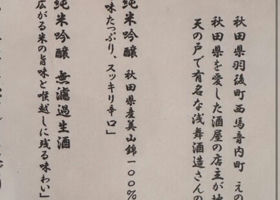 秋田県羽後町西馬音内町 えの
秋田県を愛した酒屋の店主が
天の戸で有名な浅舞酒造さんの
純米吟醸 秋田県産美山錦一〇〇%
味たっぷり、スッキリ辛口」
純米吟醸 無濾過生酒
広がる米の旨味と喉越しに残る味わい」